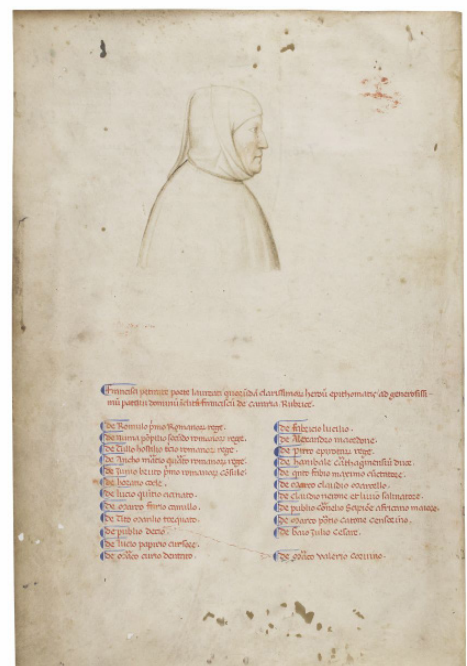 Francisci petrarce poete laureati quorūdā clarissimoꝝ heroū epithomatis ad generosissi
mū patauii dominū
de Romulo pͥmo Romanoꝝ rege.
de numa pōpilio secūdo romanoꝝ rege.
de tullo hostilio tcio romanoꝝ rege.
de Ancho martio quarto romanoꝝ rege.
de Junio bruto pͥmo romanoꝝ cōsule.
de horatio cocle.
de lucio quītio
de marco furio camillo.
de tito manlio torquato.
de publio decio.
de lucio papirio cursore.
de marco curio dentato.
de fabricio
de Alexandro macedone.
de pirro epyrotaꝝ rege.
de hanibale cathaginensiū duce.
de fabio maximo
de marco claudio marcello.
de claudio nerone et liuio salinatore.
de publio cornelio scipione africano maiore.
de marco portio catone censorino.
de Julio cesare.
de marco valerio coruino.